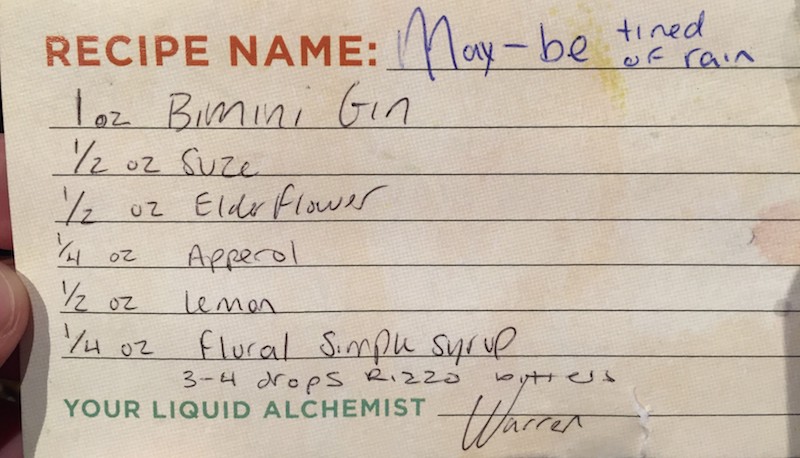 RECIPE NAME: May-be tired of rain
1 oz Bimini Gin
1/2 oz Suze
1/2 oz Elderflower
1/4 oz Apperol
1/2 oz Lemon
1/4 oz Flural Simple Syrup
3-4 drops Rizzo bitters
YOUR LIQUID ALCHEMIST Warren